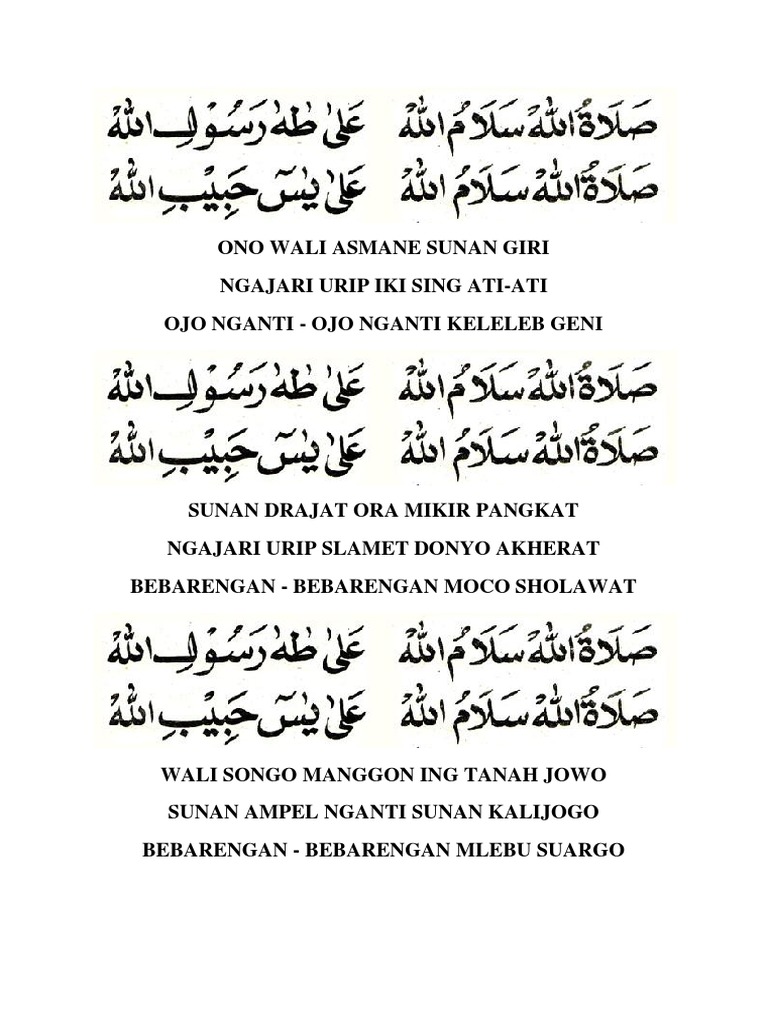 صَلَاةُ اللهْ سَلَامُ اللهْ عَلَىٰ طٰهٰ رَسُوْلِ اللهْ
صَلَاةُ اللهْ سَلَامُ اللهْ عَلَىٰ يٰسٓ حَبِيْبِ اللهْ
ONO WALI ASMANE SUNAN GIRI
NGAJARI URIP IKI SING ATI-ATI
OJO NGANTI - OJO NGANTI KELELEB GENI
صَلَاةُ اللهْ سَلَامُ اللهْ عَلَىٰ طٰهٰ رَسُوْلِ اللهْ
صَلَاةُ اللهْ سَلَامُ اللهْ عَلَىٰ يٰسٓ حَبِيْبِ اللهْ
SUNAN DRAJAT ORA MIKIR PANGKAT
NGAJARI URIP SLAMET DONYO AKHERAT
BEBARENGAN - BEBARENGAN MOCO SHOLAWAT
صَلَاةُ اللهْ سَلَامُ اللهْ عَلَىٰ طٰهٰ رَسُوْلِ اللهْ
صَلَاةُ اللهْ سَلَامُ اللهْ عَلَىٰ يٰسٓ حَبِيْبِ اللهْ
WALI SONGO MANGGON ING TANAH JOWO
SUNAN AMPEL NGANTI SUNAN KALIJOGO
BEBARENGAN - BEBARENGAN MLEBU SUARGO